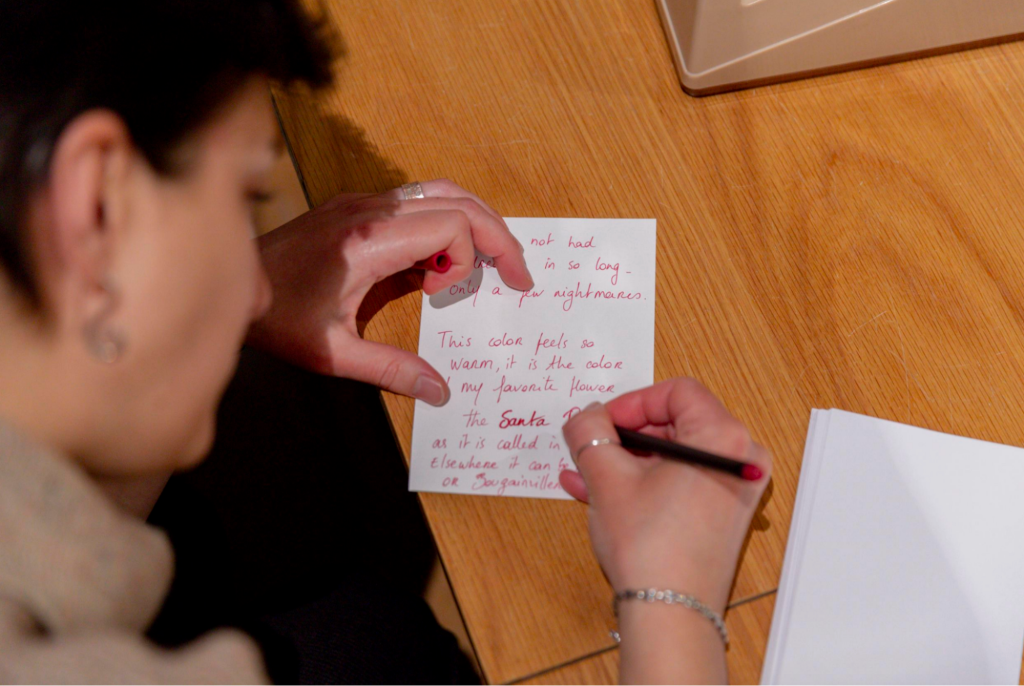 not had
in so long -
only a few nightmares.
This color feels so
warm, it is the color
my favorite flower
the Santa
as it is called in
Elsewhere it can be
or Bougainvillea